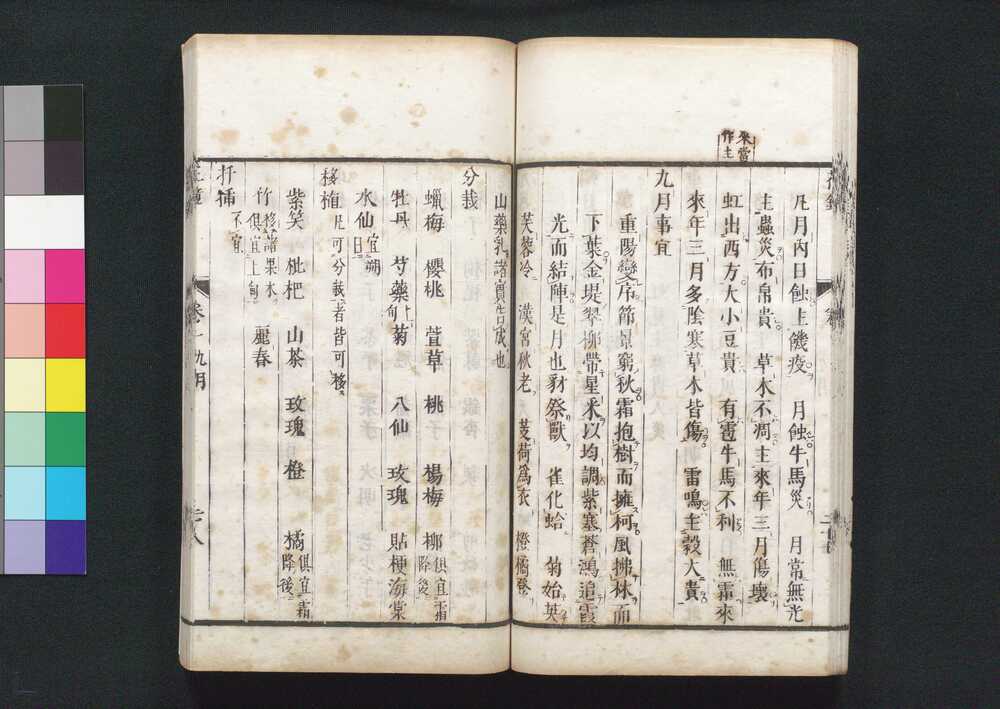 來當
作主
凡月內日蝕主饑疫 月蝕牛馬災 月常無光
主蟲災布帛貴 草木不凋主來年三月傷壞
虹出西方大小豆貴 有雹牛馬不利 無霜來
來年三月多陰寒草木皆傷 雷鳴主穀大貴
九月事宜
重陽變序節景窮秋霜抱樹而擁柯風拂林而
下葉金堤翠柳帶星采以均調紫塞蒼鴻追霞
光而結陣是月也豺祭獸 雀化蛤 菊始英
芙蓉冷 漢宮秋老 芰荷為衣 橙橘登
山藥乳諸實告成也
分栽
蠟梅 櫻桃 萱草 桃 楊梅 柳 俱宜霜降後
牡丹 芍藥上旬 菊 八仙 玫瑰 貼梗海棠
水仙宜朔日
移植 凡可分栽者皆可移
紫笑 枇杷 山茶 玫瑰 橙 橘 俱宜霜降後
竹 移諸果木俱宜上旬 麗春
扦插 不宜
花鏡 卷一 九月